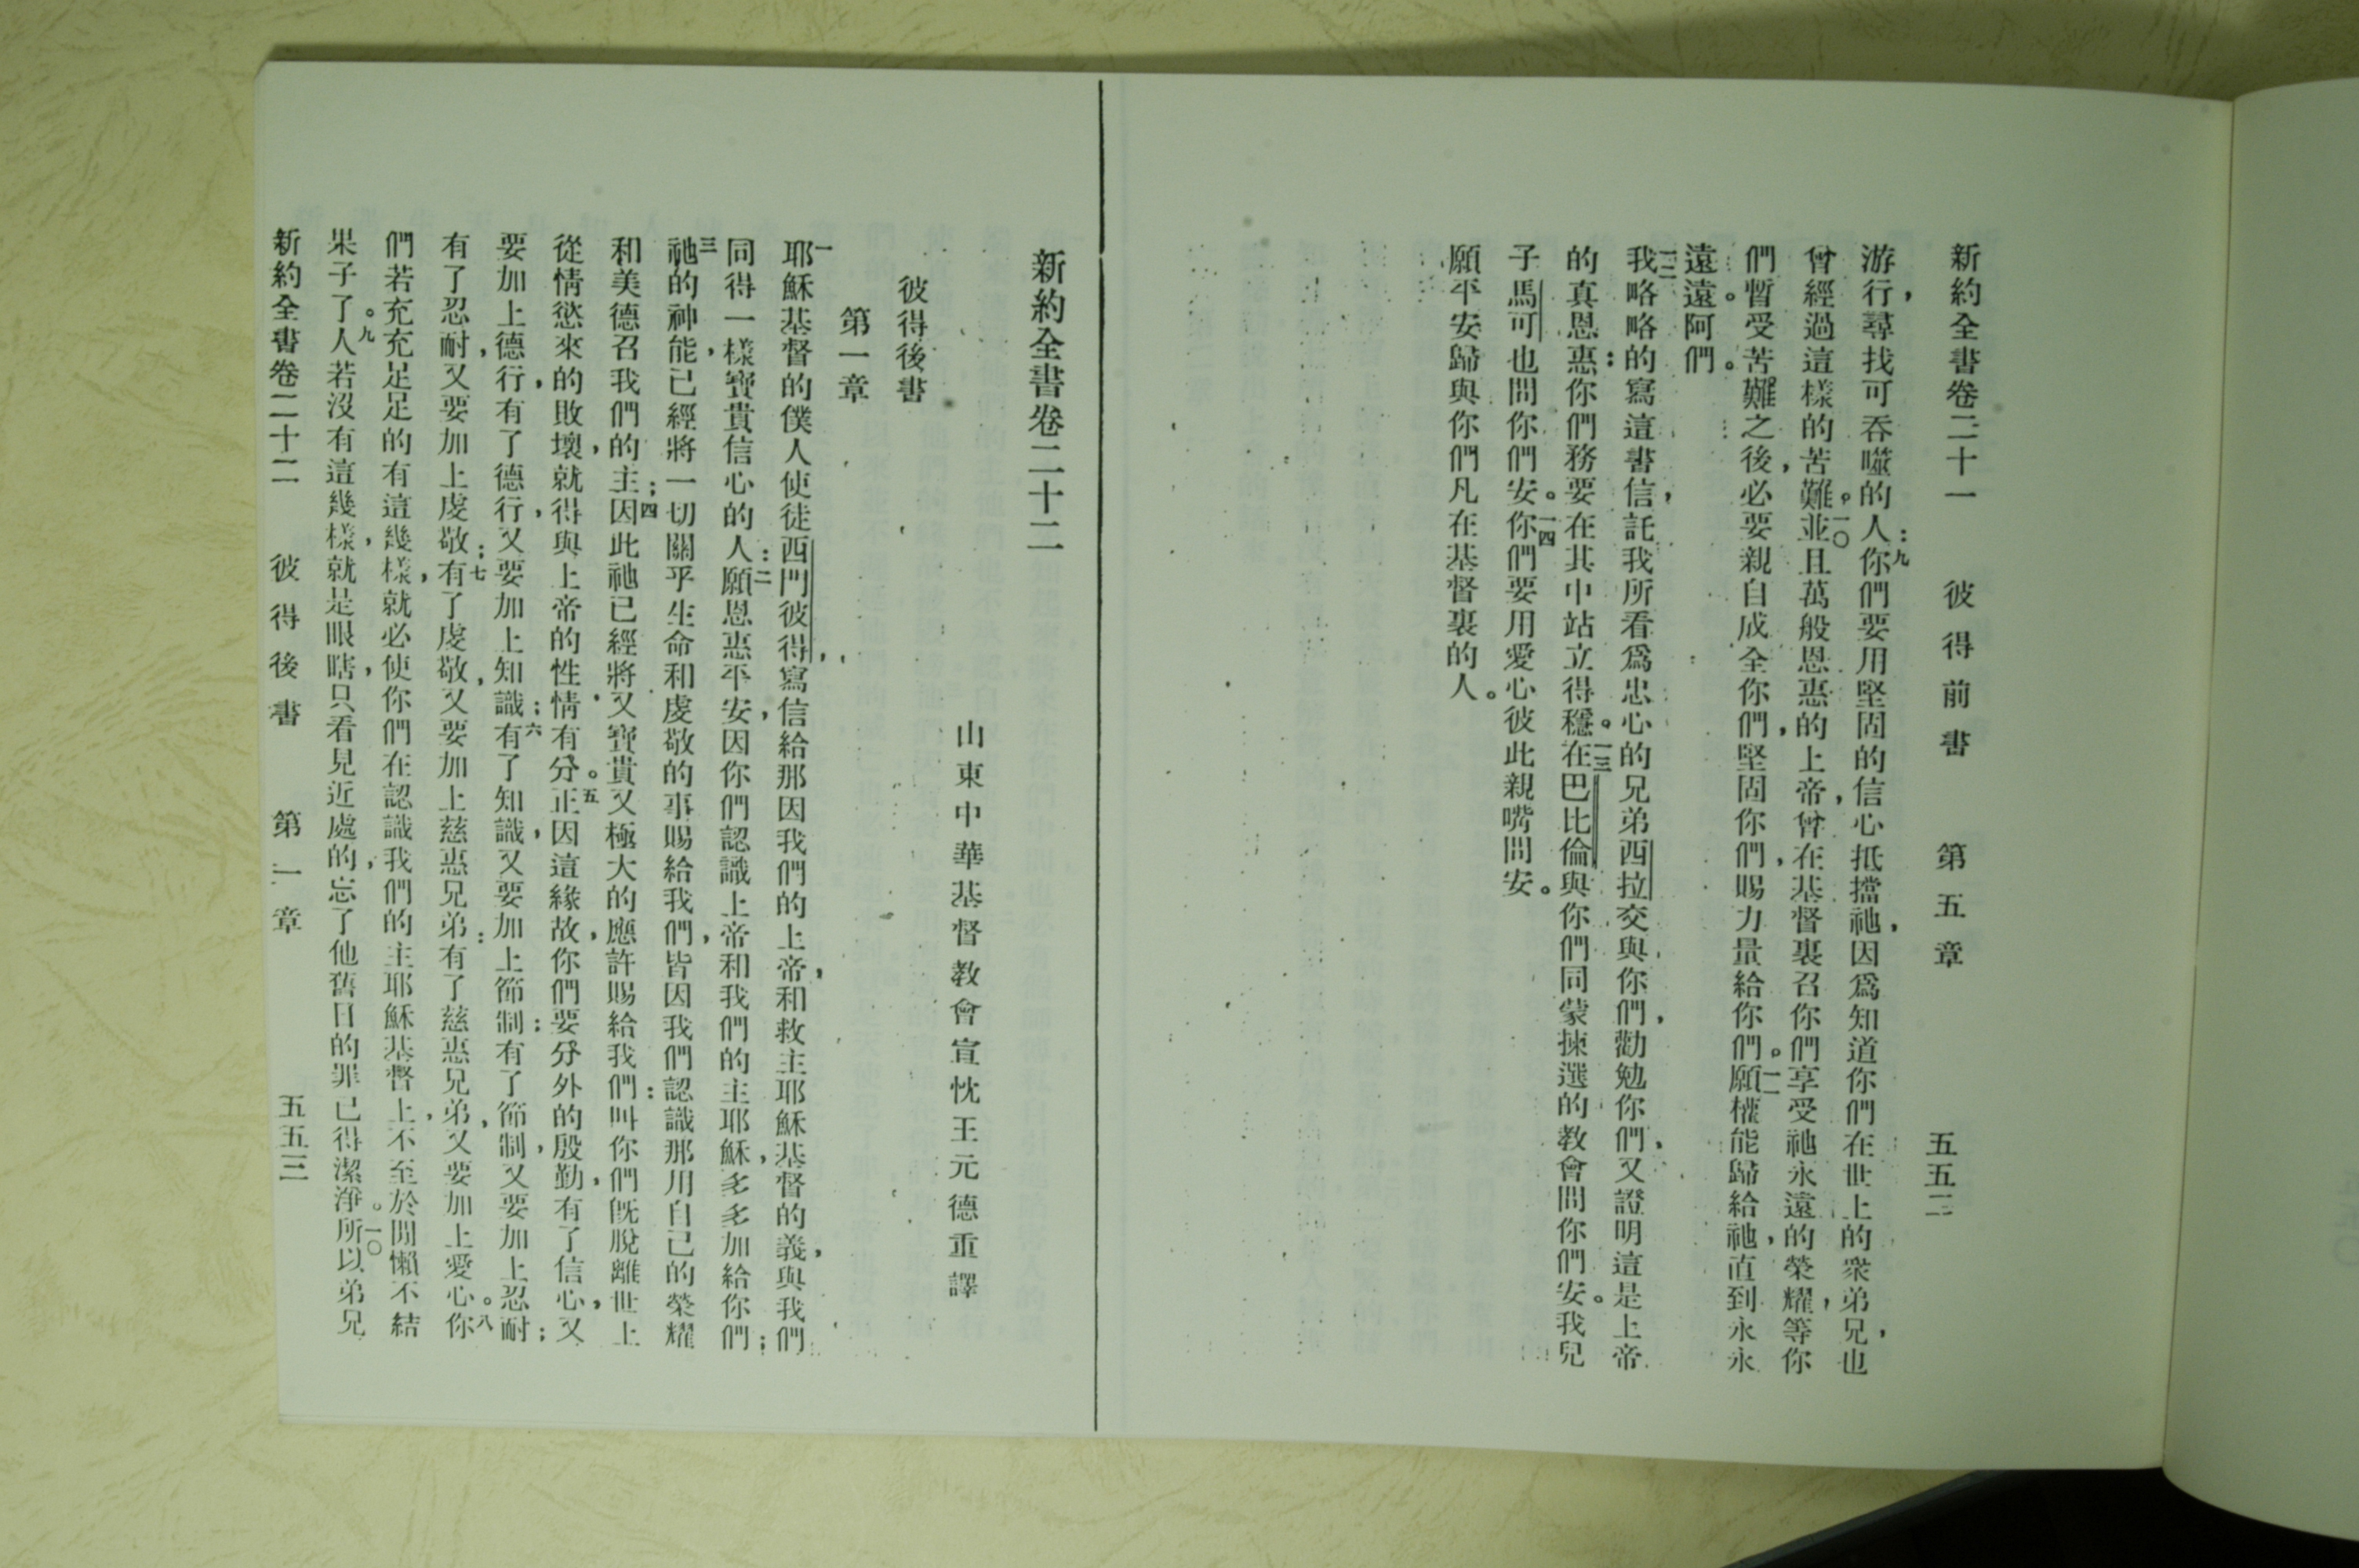 新約全書卷二十一 彼得前書 第五章 五五二
游行，尋找可吞噬的人：九你們要用堅固的信心抵擋祂，因爲知道你們在世上的衆弟兄，也
曾經過這樣的苦難。一〇並且萬般恩惠的上帝，曾在基督裏召你們享受祂永遠的榮耀，等你
們暫受苦難之後，必要親自成全你們，堅固你們，賜力量給你們。一一願權能歸給祂，直到永永
遠遠。阿們。
一二我略略的寫這書信，託我所看爲忠心的兄弟西拉交與你們，勸勉你們，又證明這是上帝
的真恩惠：你們務要在其中站立得穩。一三在巴比倫與你們同蒙揀選的教會問你們安。我兒
子馬可也問你們安。一四你們要用愛心彼此親嘴問安。
願平安歸與你們凡在基督裏的人。
新約全書卷二十二
山東中華基督教會宣忱王元德重譯
彼得後書
第一章
一耶穌基督的僕人使徒西門彼得，寫信給那因我們的上帝，和救主耶穌基督的義，與我們
同得一樣寶貴信心的人：二願恩惠平安，因你們認識上帝和我們的主耶穌，多多加給你們；
三祂的神能，已經將一切關乎生命和虔敬的事賜給我們，皆因我們認識那用自己的榮耀
和美德召我們的主；四因此祂已經將又寶貴又極大的應許賜給我們：叫你們旣脫離世上
從情慾來的敗壞，就得與上帝的性情，有分。五正因這緣故，你們要分外的殷勤，有了信心，又
要加上德行，有了德行，又要加上知識：六有了知識，又要加上節制：有了節制，又要加上忍耐；
有了忍耐，又要加上虔敬：七有了虔敬，又要加上慈惠兄弟：有了慈惠兄弟，又要加上愛心。八你
們若充充足足的有這幾樣，就必使你們在認識我們的主耶穌基督上，不至於閒懶不結
果子了。九人若沒有這幾樣，就是眼瞎，只看見近處的，忘了他舊日的罪已得潔淨。一〇所以弟兄
新約全書卷二十二 彼得後書 第一章 五五三